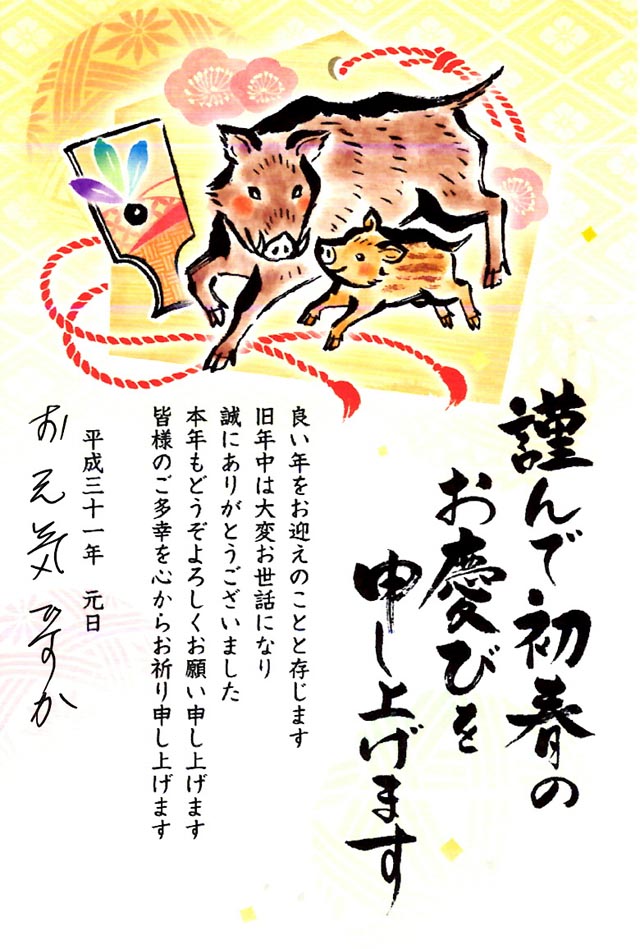 謹んで初春の
お慶びを
申し上げます
良い年をお迎えのことと存じます
旧年中は大変お世話になり
誠にありがとうございました
本年もどうぞよろしくお願い申し上げます
皆様のご多幸を心からお祈り申し上げます
平成三十一年 元日
お元気ですか